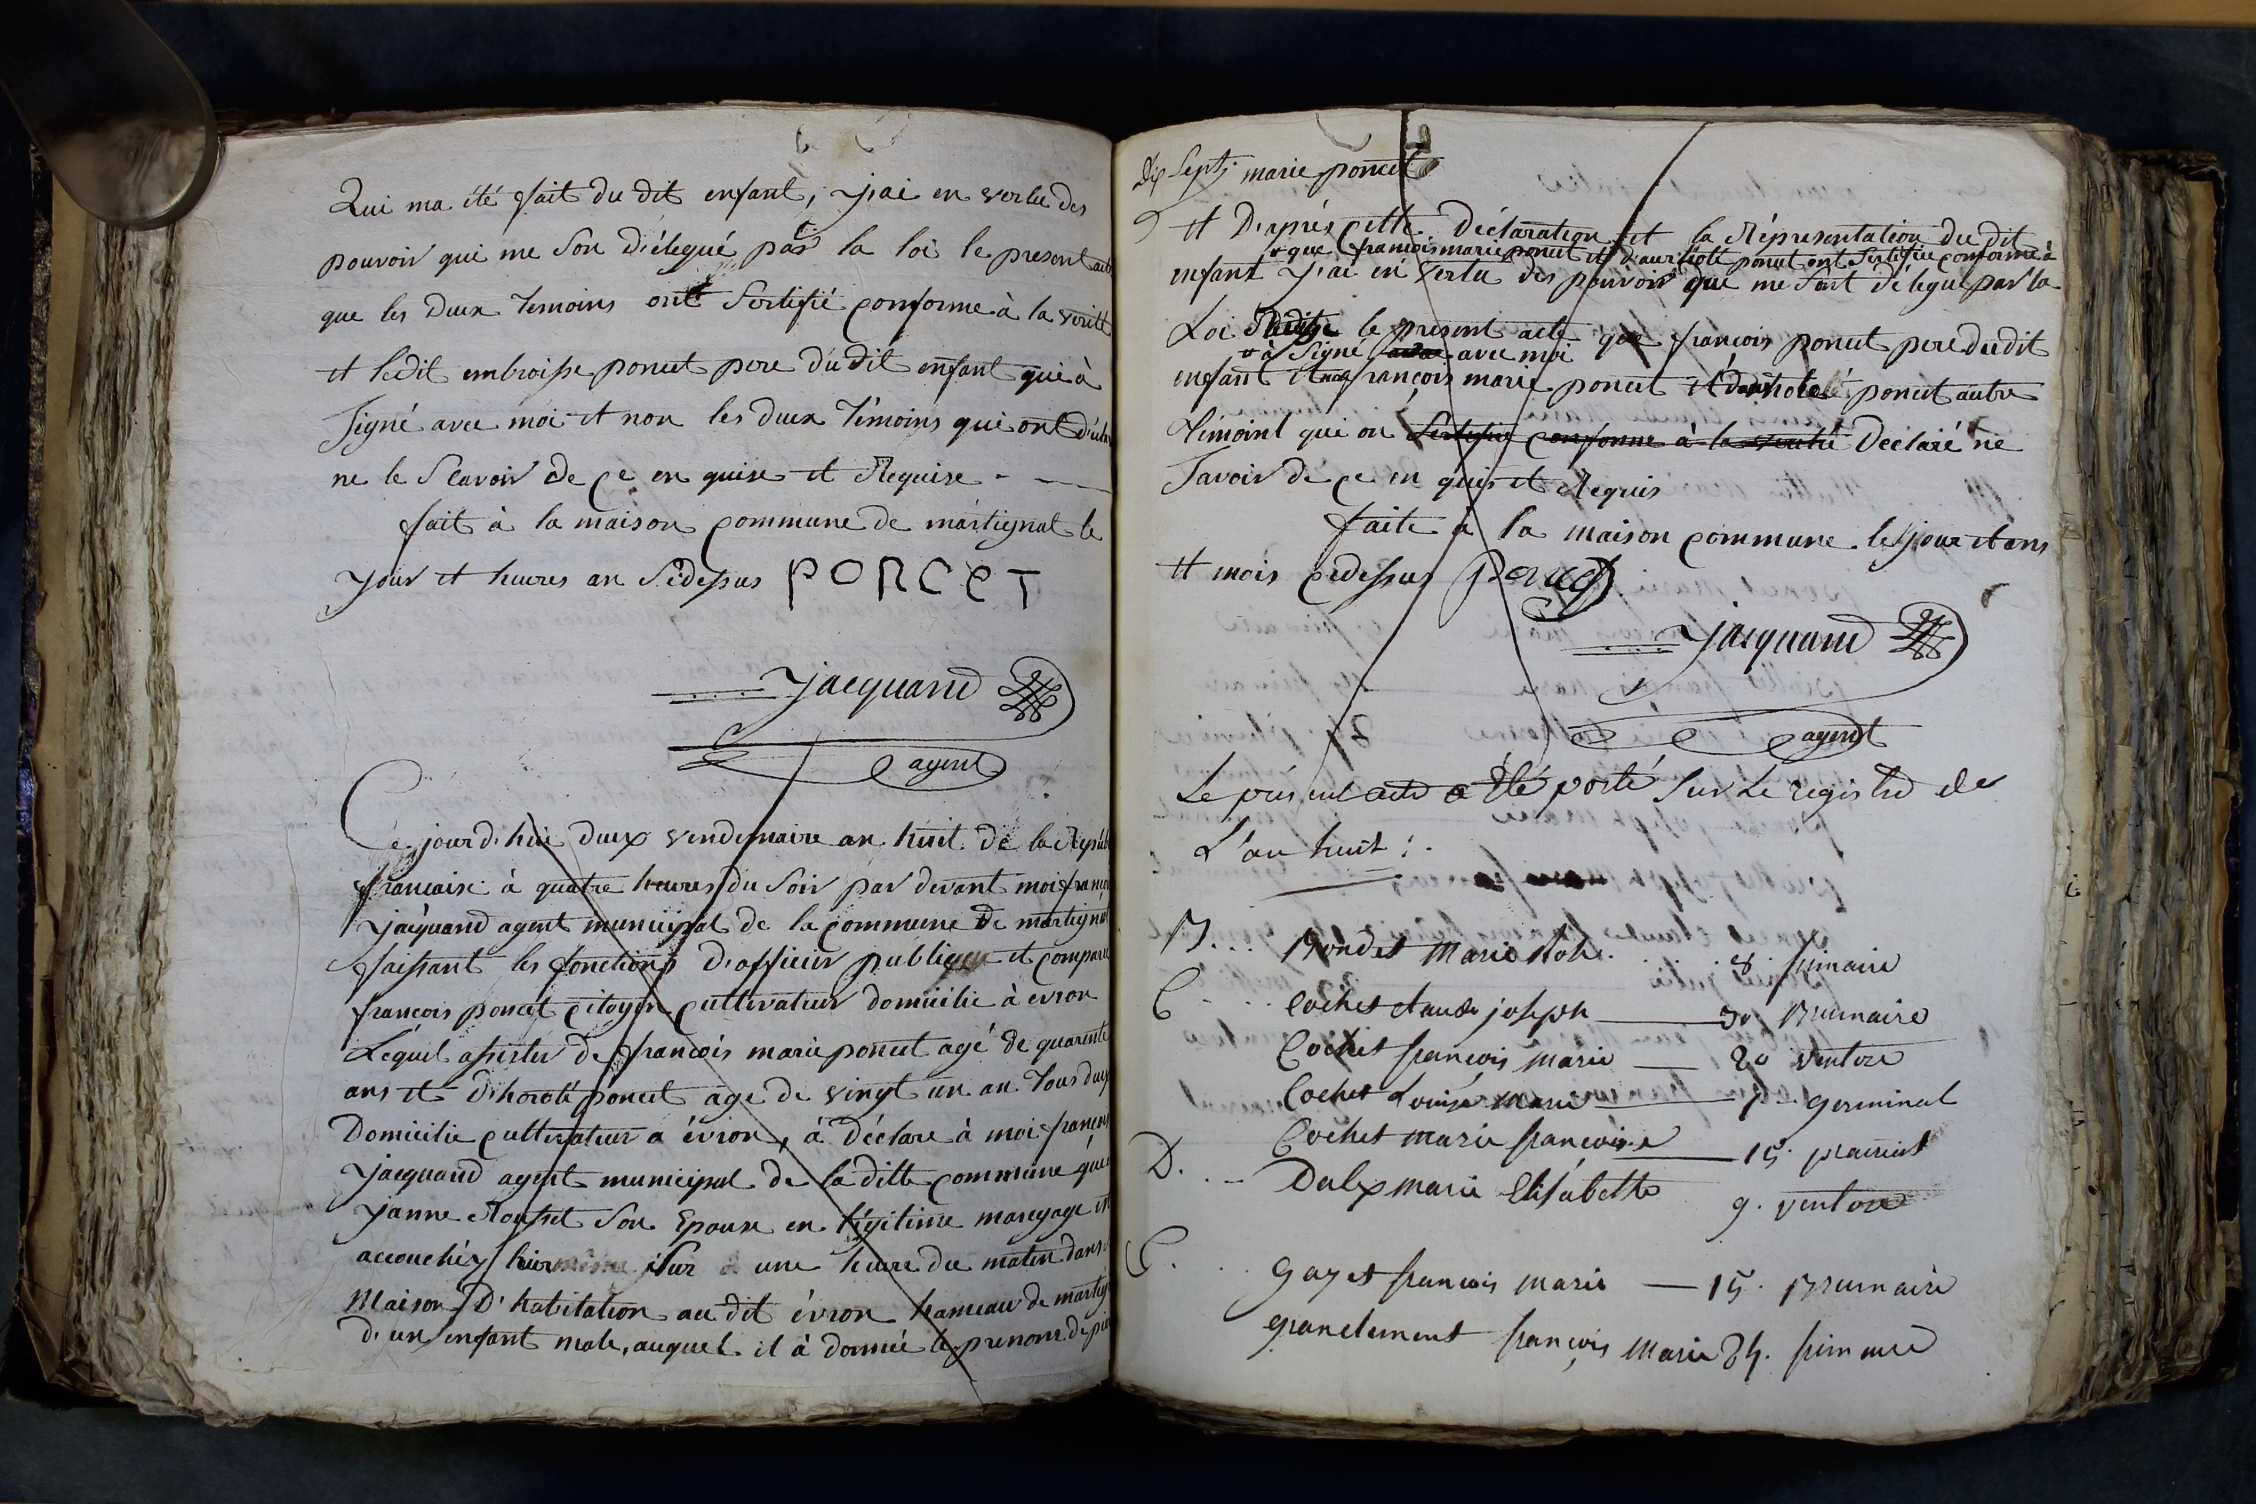 Qui ma été fait du dit enfant, j'ai en vertu des
pouvoir qui me son délegué par la loi le present acte
que les deux temoins ont sertifié conforme à la verité
et ledit embroisse poncet pere dudit enfant qui à
signé avec moi et non les deux témoins qui ont déclaré
ne le scavoir de ce en quise et Requise -
fait à la maison commune de martignat le
jour et heures an sidessus PONCET
jacquand
agent
Ce jourd'hui deux vendemaire an huit de la Republ
francaise à quatre heures du soir par devant moi francoi
jacquand agent municipal de la commune de martignat
faissant les fonctions d'officier publique et comparu
françois poncet citoyen cultivateur domicilié à evron
Lequel assister de françois marie poncet agé de quarente
ans et d'horoté poncet agé de vingt un an tous deux
Domicilié cultivateur a évron, à déclaré à moi françois
jacquand agent municipal de la ditte commune que
janne Rousset son Epouse en légitime mareyage est
accouchéz hier sur une heure du matin dans
Maison D'habitation au dit évron hameau de martig
d'un enfant male, auquel il à donnée le prenom de pi
Dix Sept; marie poncet
et D'aprés cette déclaration et la Réprésentation du dit
+ que francois marie poncet et poncet ont sertifiee conforme à
enfant j'ai en vertu des pouvoir que me sont délegué par la
Loi le present acte que françois poncet pere dudit
+ à signé avec moi
enfant et françois marie poncet et poncet autre
témoint qui on sertifie conforme à la verité Declaré ne
savoir de ce en quis et Requis
faite à la maison commune le jour et ans
et mois cedessus poncet
jacquand
agent
Le présent acte a été porté sur Le registre de
L'an huit :.
B... Bondet Marie 8. frimaire
C.... Cochet claude joseph 30 Brumaire
Cochet françois marie 20 ventose
Cochet Louise marie 7 germinal
Cochet marie françoise 15. prairial
D... Dalex marie Elisabette 9. ventose
G... gayet françois marie 15. Brumaire
grandclement françois marie 24. frimaire